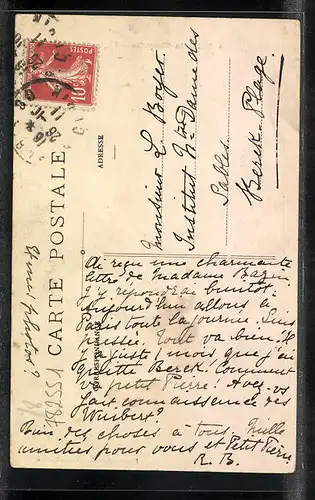 CARTE POSTALE
ADRESSE
POSTES
10
Monsieur L. Boyer
Institut Nre Dame des
Sables
Berck-Plage.
Ai reçu une charmante
lettre de Madame Bazin
J'y répondrai bientôt.
Aujourd'hui allons à
Paris toute la journée. Suis
pressée. Tout va bien. Il
y a juste 1 mois que j'ai
quitté Berck. Comment
va petit Pierre? Avez-vs
fait connaissance des
Wimbert?
Bien des choses à tous. Mille
amitiés pour vous et Petit Pierre
R. B.